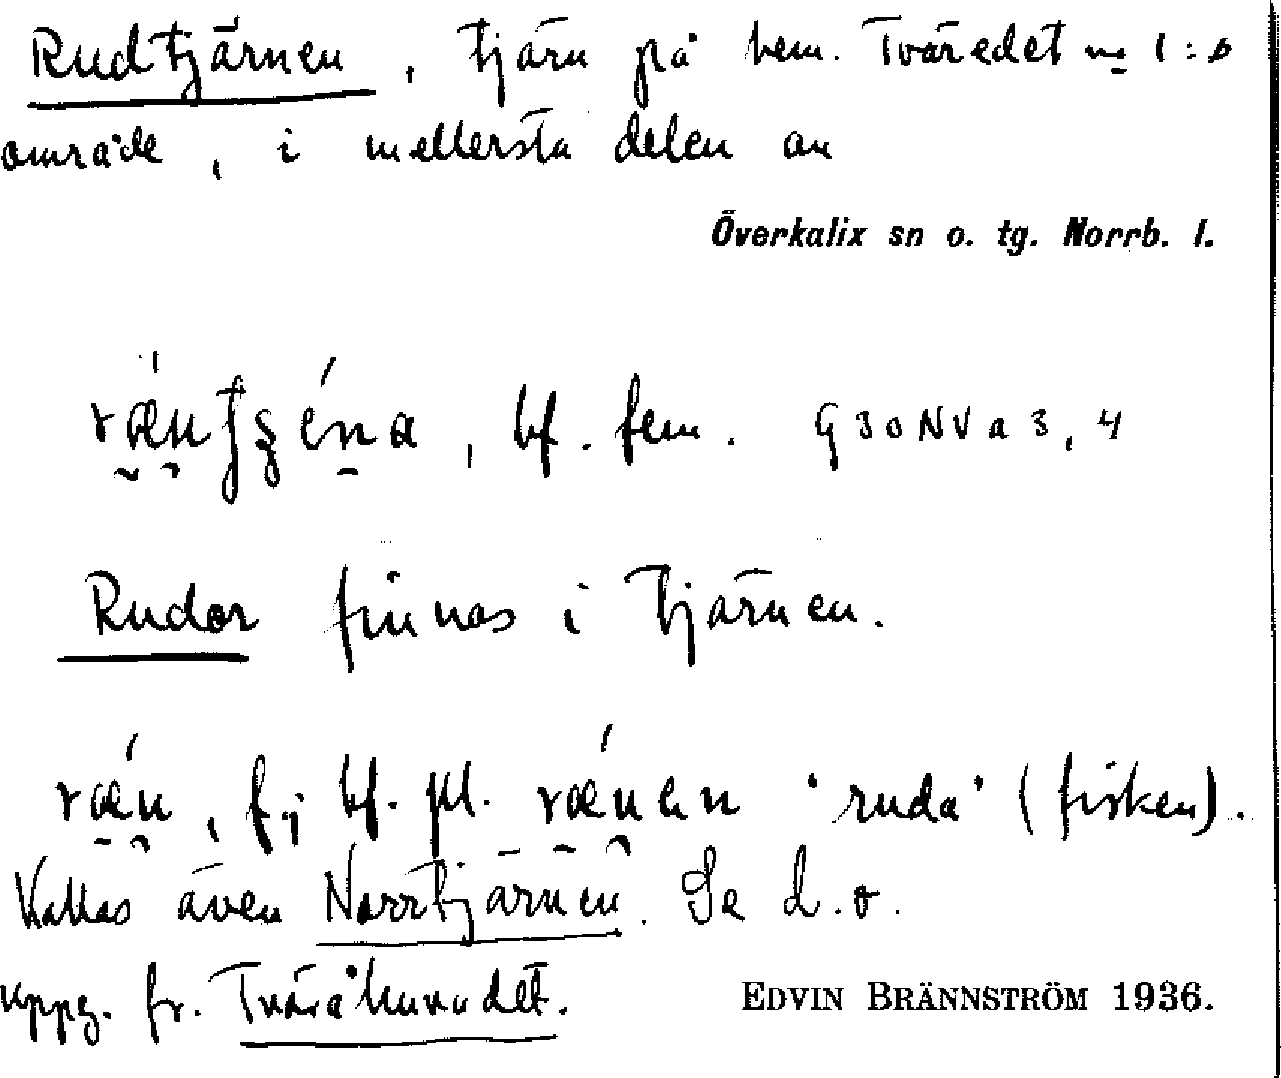 Rudtjärnen, tjärn på hem. Tväredet nr 1:s
område, i mellersta delen av
Överkalix sn o. tg. Norrb. l.
bf. fem. G30NVa3,4
Rudor finnas i tjärnen.
ræn, f.; bf. pl. rænen 'ruda' (fisken).
Kallas även Norrtjärnen. Se d.o.
uppg. fr. Tvåråhuvudet.
EDVIN BRÄNNSTRÖM 1936.